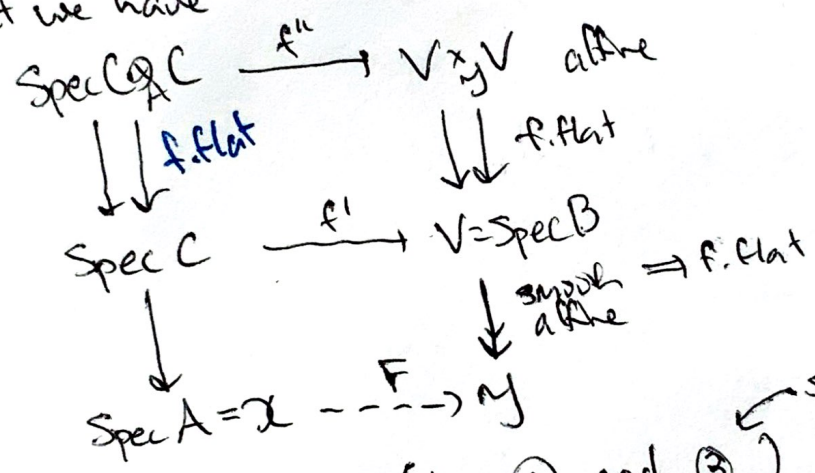 t we have
Spec C⊗_A C f'' V×_𝒴 V affine
f.flat f.flat
Spec C f' V=Spec B
smooth ⇒ f.flat
affine
Spec A = 𝒳 F 𝒴
and ③ )